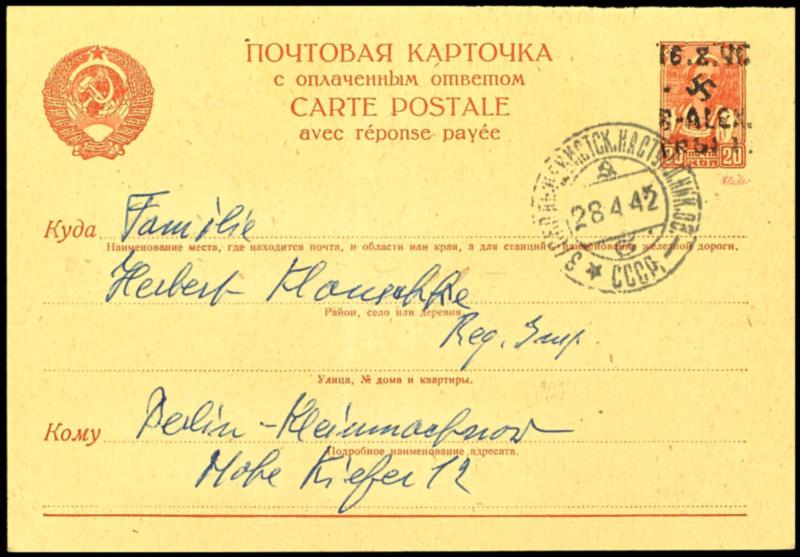 ПОЧТОВАЯ КАРТОЧКА
с оплаченным ответом
CARTE POSTALE
avec réponse payée
20 ПОЧТА 20
КОП
28 4 42
СССР
Куда Familie
Наименование места, где находится почта, и области или края, а для станций наименование железной дороги.
Herbert
Район, село или деревня
Reg. Insp.
Улица, № дома и квартиры.
Кому Berlin - Kleinmachnow
Подробное наименование адресата.
Hohe Kiefer 12